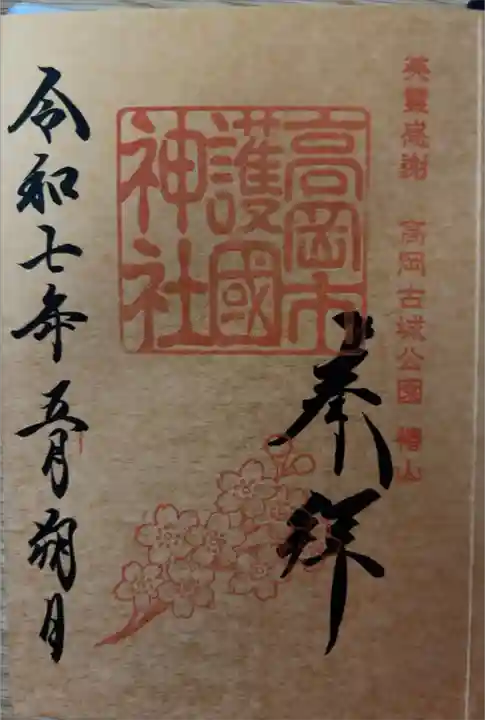 英霊感謝　高岡古城公園　椿山
奉拝
高岡市
護國
神社
令和七年五月朔日